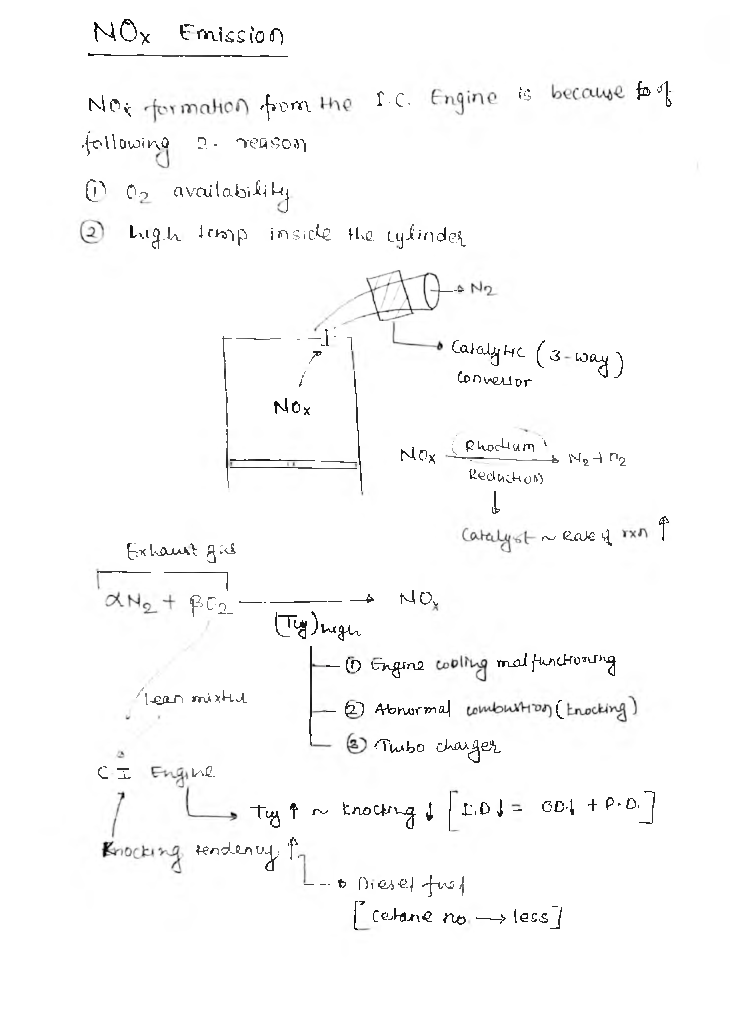 NOx Emission
NOx formation from the I.C. Engine is because of
following 2. reason
① O2 availability
② high temp inside the cylinder
N2
Catalytic (3-way)
Convertor
NOx
NOx Rhodium N2 + O2
Reduction
Catalyst ~ Rate of rxn ↑
Exhaust gas
αN2 + βO2 → NOx
(Tcy)high
① Engine cooling malfunctioning
Lean mixture
② Abnormal combustion (knocking)
③ Turbo charger
CI Engine
Tcy ↑ ~ knocking ↓ [I.D ↓ = CD↓ + P.D.]
Knocking tendency ↑
Diesel fuel
[Cetane no → less]